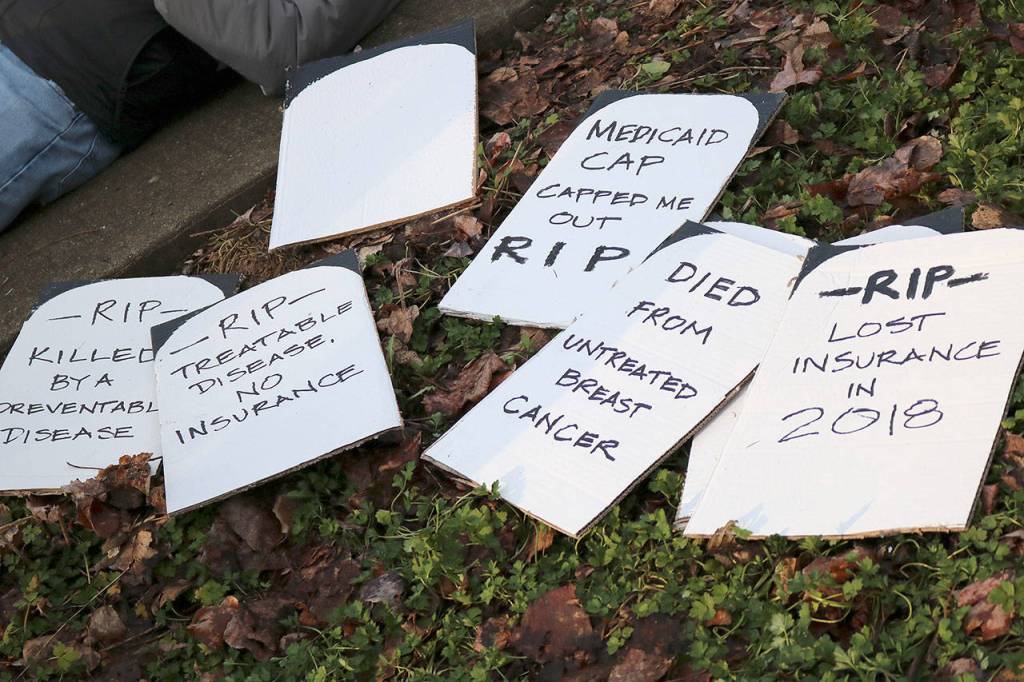 MEDICAID
CAP
CAPPED ME
OUT
RIP
-RIP-
KILLED
BY A
PREVENTABL
DISEASE
-RIP-
TREATABLE
DISEASE.
NO
INSURANCE
DIED
FROM
UNTREATED
BREAST
CANCER
-RIP-
LOST
INSURANCE
IN
2018